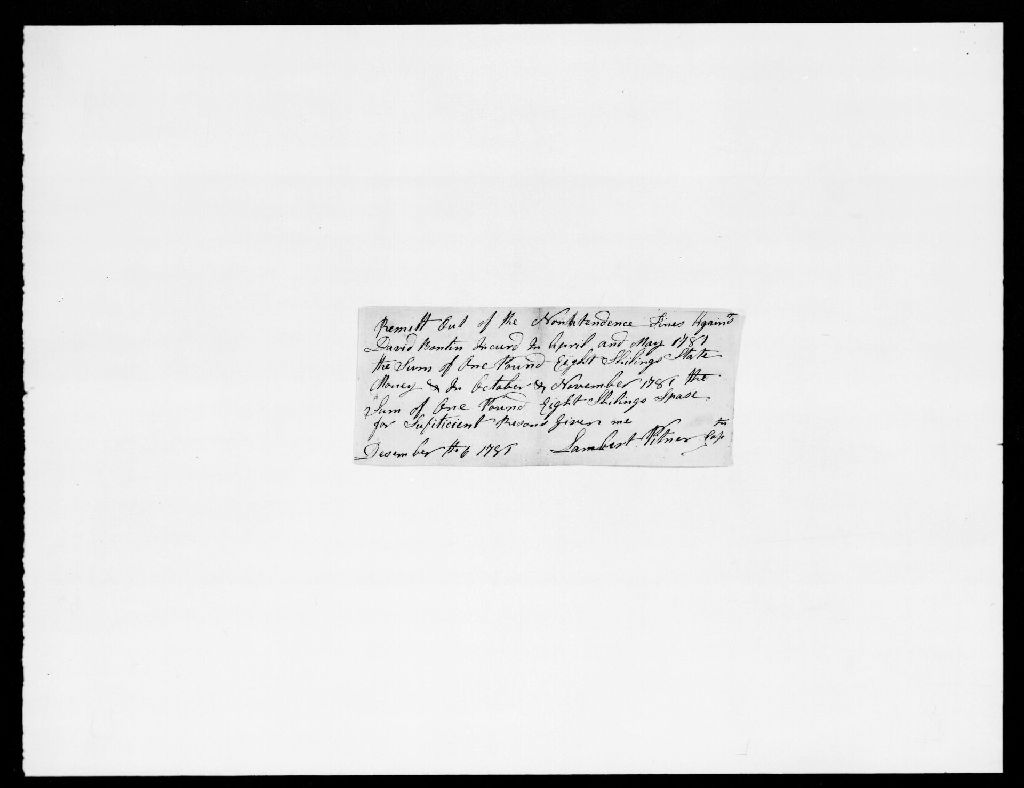 Remitt Out of the Nonattendence Fines Againt
David Bontin Incurd In April and May 1781
the Sum of One Pound Eight Shilings State
Money & In October & November 1781 the
Sum of One Pound Eight Shilings Spase
for Sufiticient Reasons Given me
Desember the 6 1781 Lambert Vitner Cap